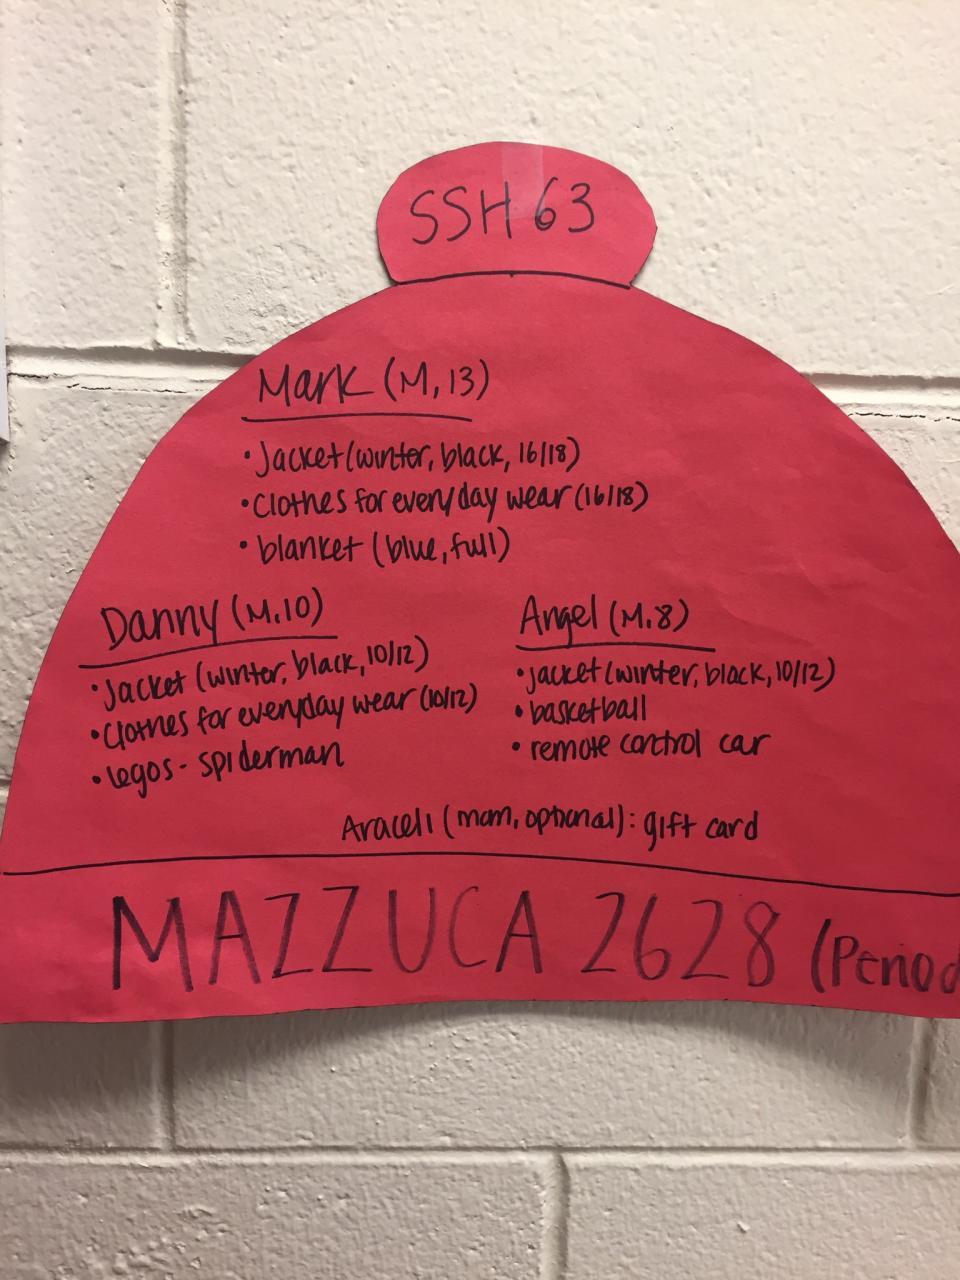 SSH 63
Mark (M, 13)
• Jacket (winter, black, 16/18)
• Clothes for everyday wear (16/18)
• blanket (blue, full)
Danny (M, 10)
• Jacket (winter, black, 10/12)
• Clothes for everyday wear (10/12)
• legos - spiderman
Angel (M, 8)
• jacket (winter, black, 10/12)
• basketball
• remote control car
Araceli (mom, optional): gift card
MAZZUCA 2628 (Period